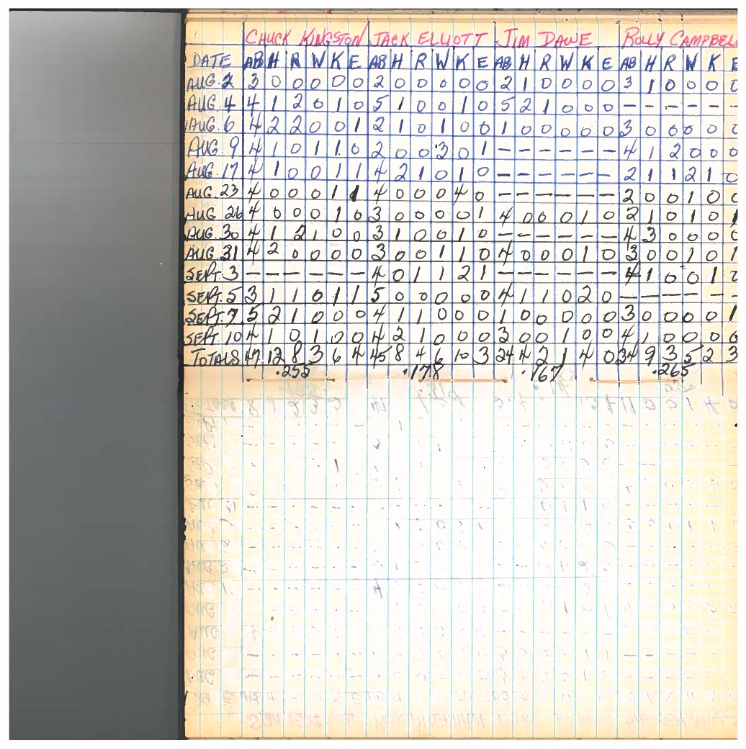 CHUCK KINGSTON JACK ELLIOTT JIM DAWE ROLLY CAMPBEL
DATE AB H R W K E AB H R W K E AB H R W K E AB H R W K E
AUG. 2 3 0 0 0 0 0 2 0 0 0 0 0 2 1 0 0 0 0 3 1 0 0 0 0
AUG. 4 4 1 2 0 1 0 5 1 0 0 1 0 5 2 1 0 0 0 - - - - - -
AUG. 6 4 2 2 0 0 1 2 1 0 1 0 0 1 0 0 0 0 0 3 0 0 0 0 0
AUG. 9 4 1 0 1 1 0 2 0 0 3 0 1 - - - - - - 4 1 2 0 0 0
AUG. 17 4 1 0 0 1 1 4 2 1 0 1 0 - - - - - - 2 1 1 2 1 0
AUG. 23 4 0 0 0 1 1 4 0 0 0 4 0 - - - - - - 2 0 0 1 0 0
AUG. 26 4 0 0 0 1 0 3 0 0 0 0 1 4 0 0 0 1 0 2 1 0 1 0 1
AUG. 30 4 1 2 1 0 0 3 1 0 0 1 0 - - - - - - 4 3 0 0 0 0
AUG. 31 4 2 0 0 0 0 3 0 0 1 1 0 4 0 0 0 1 0 3 0 0 1 0 1
SEPT. 3 - - - - - - 4 0 1 1 2 1 - - - - - - 4 1 0 0 1 0
SEPT. 5 3 1 1 0 1 1 5 0 0 0 0 0 4 1 1 0 2 0 - - - - - -
SEPT. 7 5 2 1 0 0 0 4 1 1 0 0 0 1 0 0 0 0 0 3 0 0 0 0 1
SEPT. 10 4 1 0 1 0 0 4 2 1 0 0 0 3 0 0 1 0 0 4 1 0 0 0 0
TOTALS 47 12 8 3 6 4 45 8 4 6 10 3 24 4 2 1 4 0 34 9 3 5 2 3
.255 .178 .167 .265